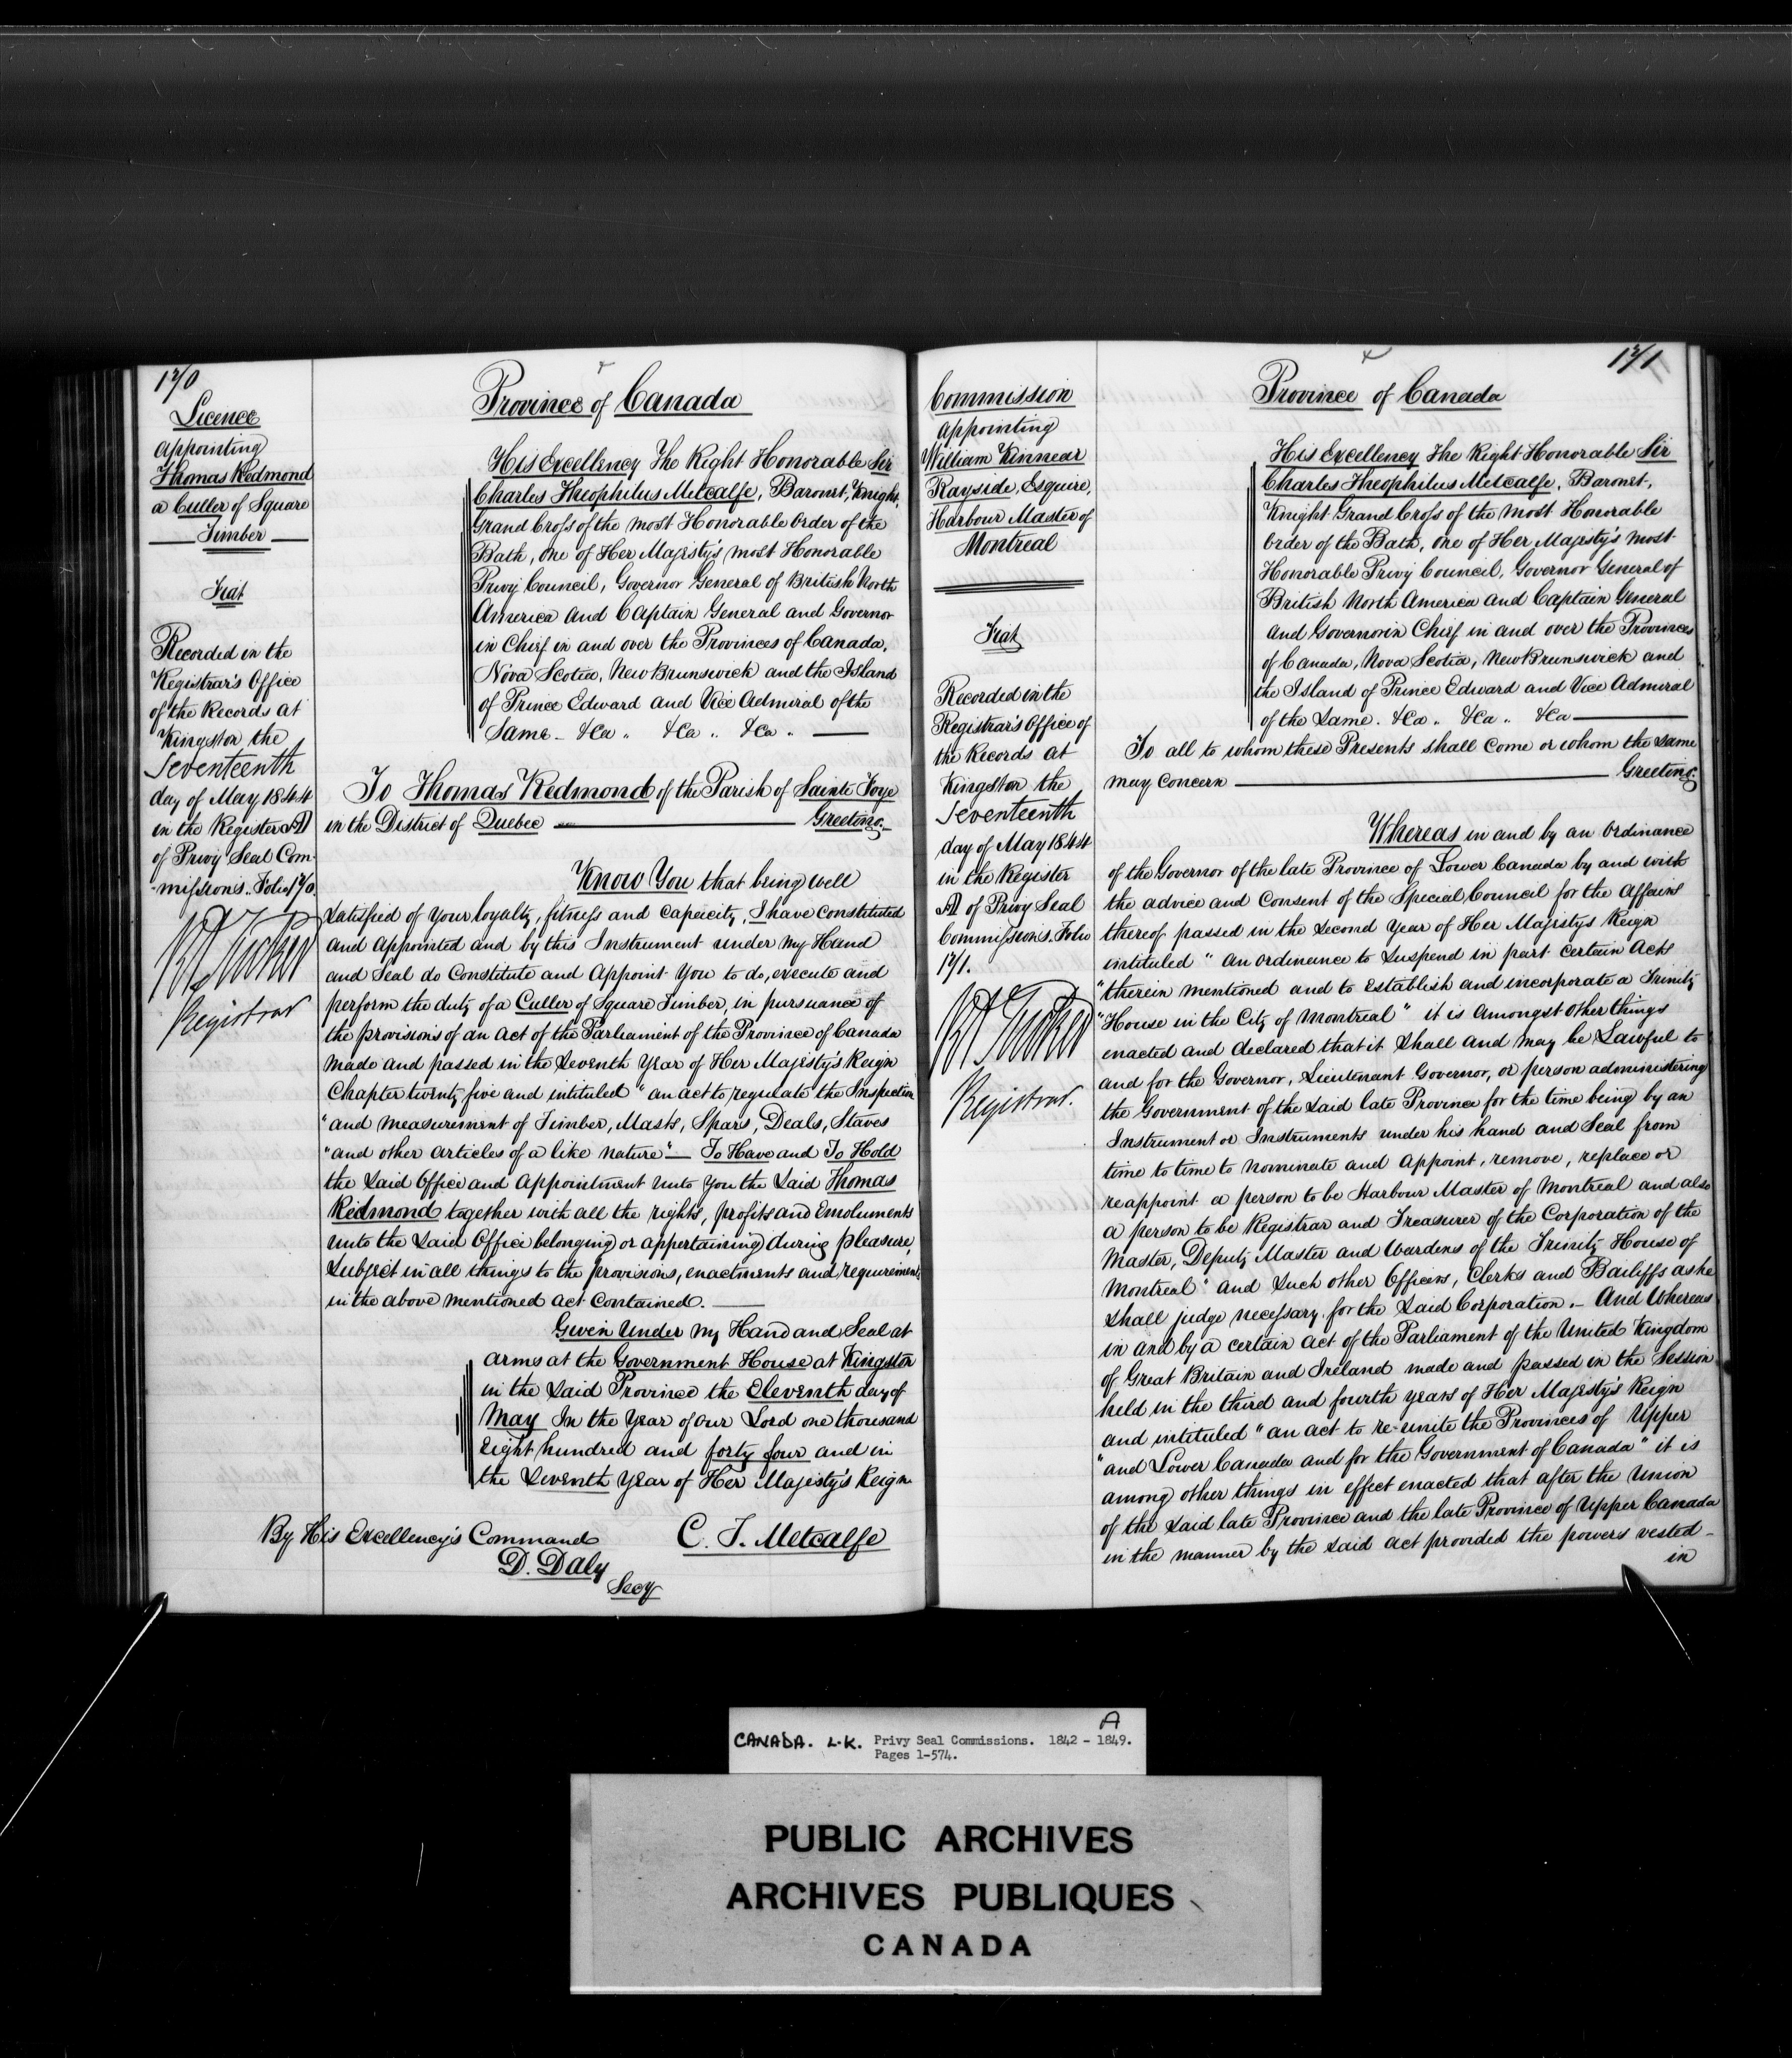 170
Licence
appointing
Thomas Redmond
a Culler of Square
Timber
Fiat
Recorded in the
Registrar's Office
of the Records at
Kingston the
Seventeenth
day of May 1844
in the Register A
of Privy Seal Com
-missions. Folio 170.
Registrar
Province of Canada
His Excellency The Right Honorable Sir
Charles Theophilus Metcalfe, Baronet, Knight,
Grand Cross of the most Honorable Order of the
Bath, One of Her Majesty's most Honorable
Privy Council, Governor General of British North
America and Captain General and Governor
in Chief in and over the Provinces of Canada,
Nova Scotia, New Brunswick and the Island
of Prince Edward and Vice Admiral of the
Same - &ca .. &ca .. &ca ..
To Thomas Redmond of the Parish of Sainte Foye
in the District of Quebec Greeting.
Know You that being well
satisfied of your loyalty, fitness and capacity, I have constituted
and appointed and by this Instrument under my Hand
and Seal do Constitute and Appoint You to do, execute and
perform the duty of a Culler of Square Timber, in pursuance of
the provisions of an Act of the Parliament of the Province of Canada
made and passed in the Seventh Year of Her Majesty's Reign
Chapter twenty five and intituled "an act to regulate the Inspection
"and measurement of Timber, Masts, Spars, Deals, Staves
"and other articles of a like nature" - To Have and To Hold
the said Office and Appointment unto You the said Thomas
Redmond together with all the rights, profits and Emoluments
unto the said Office belonging or appertaining during pleasure,
Subject in all things to the provisions, enactments and requirements
in the above mentioned Act Contained.
Given Under my Hand and Seal at
arms at the Government House at Kingston
in the said Province the Eleventh day of
May In the Year of our Lord one thousand
eight hundred and forty four and in
the Seventh Year of Her Majesty's Reign
By His Excellency's Command
C. T. Metcalfe
D. Daly
Secy
171
Commission
appointing
William Kinnear
Rayside, Esquire,
Harbour Master of
Montreal
Fiat
Recorded in the
Registrar's Office of
the Records at
Kingston the
Seventeenth
day of May 1844
in the Register
A of Privy Seal
Commissions. Folio
171.
Registrar.
Province of Canada
His Excellency The Right Honorable Sir
Charles Theophilus Metcalfe, Baronet,
Knight Grand Cross of the most Honorable
Order of the Bath, One of Her Majesty's most
Honorable Privy Council, Governor General of
British North America and Captain General
and Governor in Chief in and over the Provinces
of Canada, Nova Scotia, New Brunswick and
the Island of Prince Edward and Vice Admiral
of the Same. &ca .. &ca .. &ca
To all to whom these Presents shall come or whom the same
may concern Greeting.
Whereas in and by an Ordinance
of the Governor of the late Province of Lower Canada by and with
the advice and Consent of the Special Council for the Affairs
thereof passed in the Second Year of Her Majesty's Reign
intituled "An Ordinance to Suspend in part certain Acts
"therein mentioned and to establish and incorporate a Trinity
"House in the City of Montreal" it is amongst other things
enacted and declared that it shall and may be Lawful to
and for the Governor, Lieutenant Governor, or person administering
the Government of the said late Province for the time being by an
Instrument or Instruments under his hand and Seal from
time to time to nominate and Appoint, remove, replace or
reappoint a person to be Harbour Master of Montreal and also
a person to be Registrar and Treasurer of the Corporation of the
Master, Deputy Master and Wardens of the Trinity House of
Montreal" and such other Officers, Clerks and Bailiffs as he
shall judge necessary for the said Corporation. - And Whereas
in and by a certain Act of the Parliament of the United Kingdom
of Great Britain and Ireland made and passed in the Session
held in the third and fourth years of Her Majesty's Reign
and intituled "an act to re-unite the Provinces of Upper
"and Lower Canada and for the Government of Canada" it is
among other things in effect enacted that after the Union
of the said late Province and the late Province of Upper Canada
in the manner by the said act provided the powers vested -
in
A
CANADA. L.K. Privy Seal Commissions. 1842 - 1849.
Pages 1-574.
PUBLIC ARCHIVES
ARCHIVES PUBLIQUES
CANADA